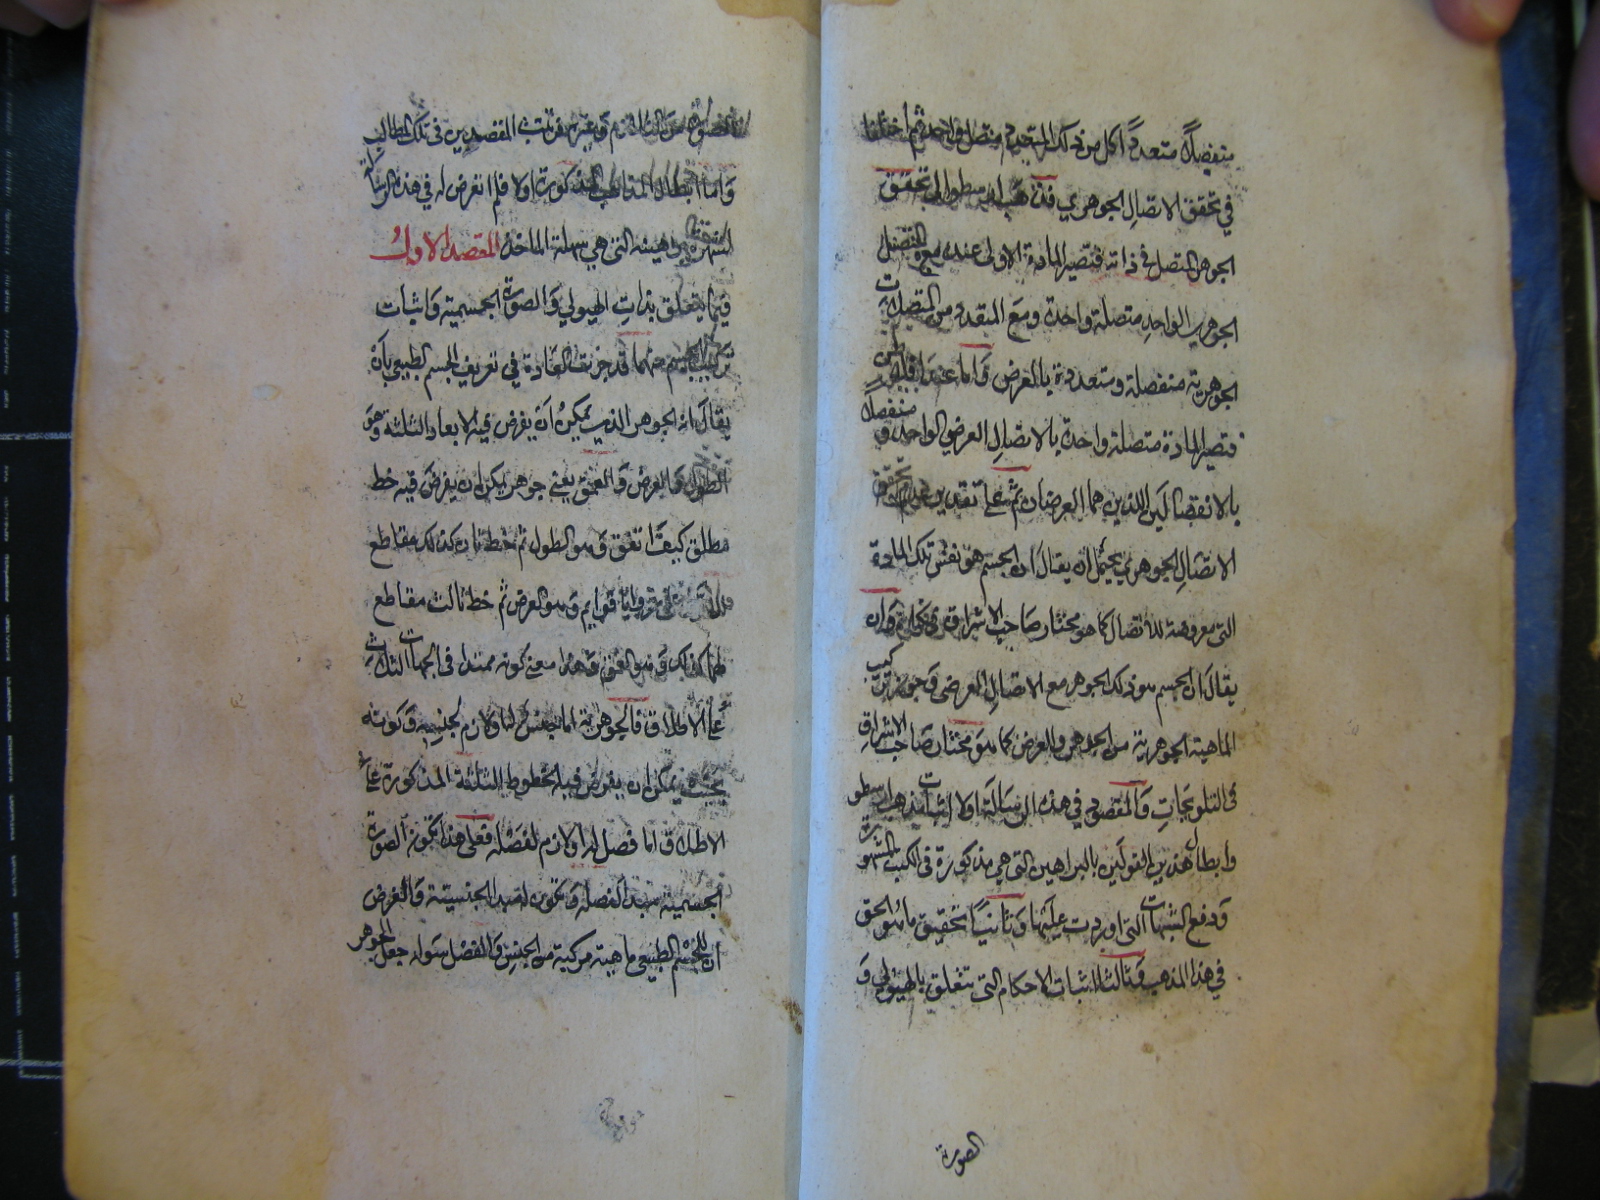 منفصلاً متعدداً اكل من ذلك المتجدد متصل واحد ثم اختلفا
في تحقق الاتصال الجوهري فذهب ارسطو الى تحقق
الجوهر المتصل في ذاته فتصير المادة الاولى عنده مع المتصل
الجوهري الواحد متصلة واحدة ومع المتعدد من المتصلات
الجوهرية منفصلة ومتعددة بالعرض واما عند افلاطن
فتصير المادة متصلة واحدة بالاتصال العرضي الواحد و منفصلة
بالانفصالين اللذين هما العرضان ثم على تقدير عدم تحقق
الاتصال الجوهري يحتمل ان يقال ان الجسم هو نفس تلك المادة
التي معروضة للاتصال كما هو مختار صاحب الاشراق في وان
يقال ان الجسم هو ذلك الجوهر مع الاتصال العرضي وجوز تركيب
الماهية الجوهرية من الجوهر والعرض كما هو مختار صاحب الاشراق
في التلويحات والمقصود في هذه الرسالة اولا اثبات مذهب ارسطو
وابطال هذين القولين بالبراهين التي هي مذكورة في الكتب المشهورة
ودفع الشبهات التي اوردت عليها وثانياً تحقيق ما هو الحق
في هذا المذهب وثالثا اثبات الاحكام التي تتعلق بالهيولي و
الصورة
المقصدين في تلك المطالب
واما ابطال المذاهب المذكورة اولا فلم اتعرض له في هذه الرسالة
هي سهلة الماخذ المقصد الاول
فيما يتعلق بذات الهيولي والصورة الجسمية واثبات
تركيب الجسم منهما قد جرت العادة في تعريف الجسم الطبيعي بان
يقال انه الجوهر الذي يمكن ان يفرض فيه الابعاد الثلثة وهو
الطول والعرض والعمق يعني جوهر يمكن ان يفرض فيه خط
مطلق كيف اتفق وهو الطول ثم خط ثان كذلك مقاطع
قوايم وهو العرض ثم خط ثالث مقاطع
لهما كذلك وهو العمق وهذا معنى كونه ممتدا في الجهات الثلاث
على الاطلاق فالجوهرية اما جنس له او لازم لجنسه وكونه
بحيث يمكن ان يفرض فيه الخطوط الثلثة المذكورة على
الاطلاق اما فصل له او لازم لفصله فعلى هذا تكون الصورة
الجسمية مبدا لفصله وتكون لمبدا الجنسية والغرض
ان للجسم الطبيعي ماهية مركبة من الجنس والفصل سواء جعل الجوهر